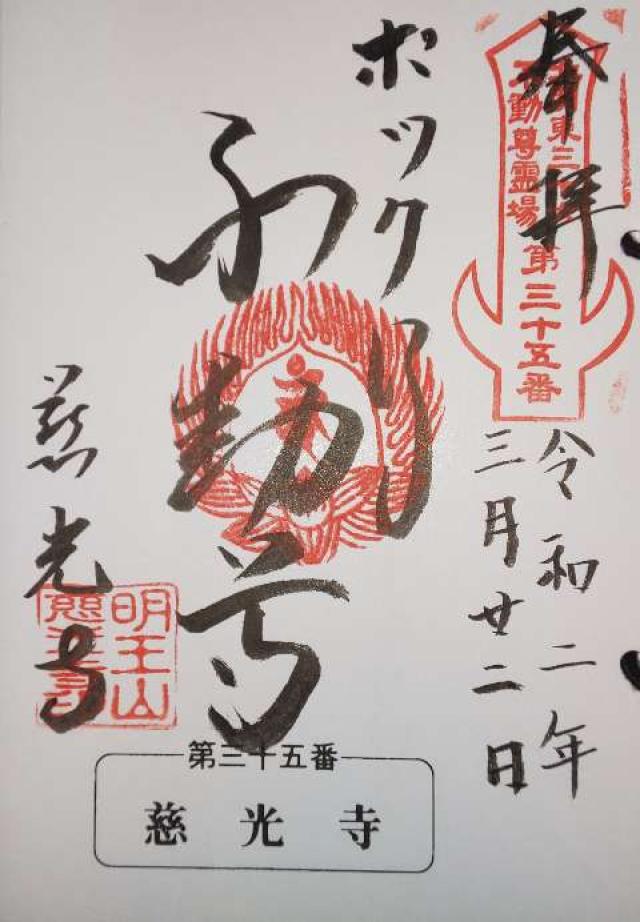 奉拝
東三
不動尊霊場
第三十五番
令和二年
三月廿二日
ポックリ
不動尊
慈光寺
明王山
慈光寺
第三十五番
慈光寺